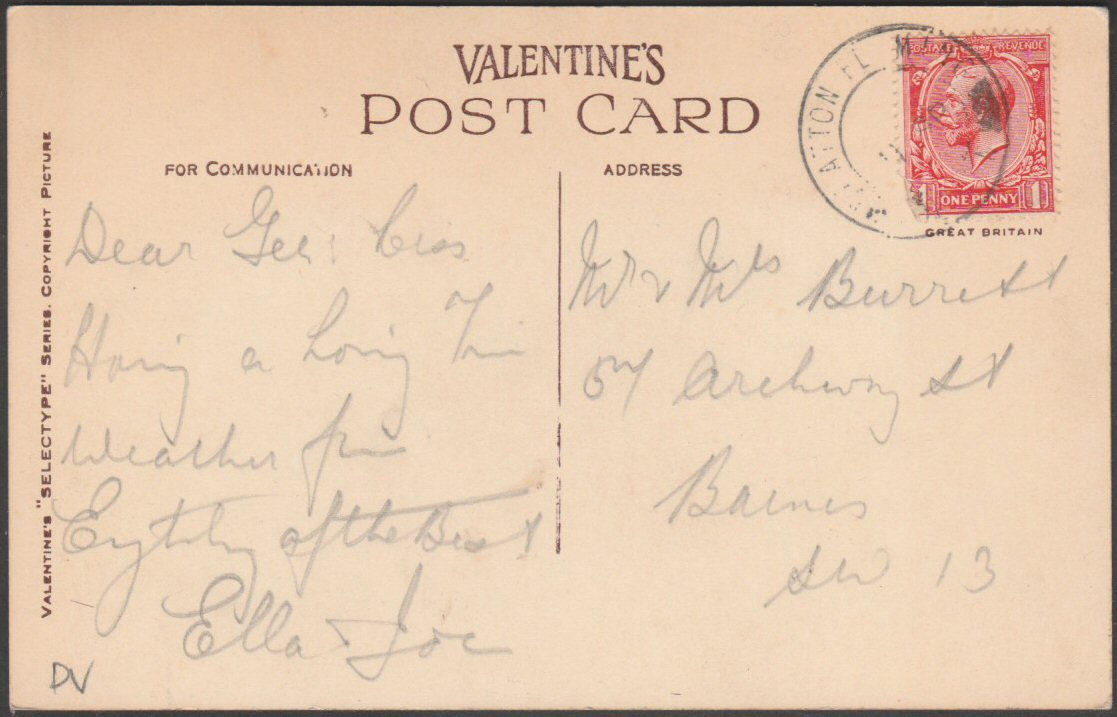 VALENTINE'S
POST CARD
FOR COMMUNICATION
ADDRESS
VALENTINE'S "SELECTYPE" SERIES. COPYRIGHT PICTURE
POSTAGE REVENUE
1 ONE PENNY 1
GREAT BRITAIN
ATTON FL
Dear Cess
Having a Loving Time
Weather fine
of the Best
Ella Joe
Mr & Mrs Burrett
57 Archway St
Barnes
SW 13
DV